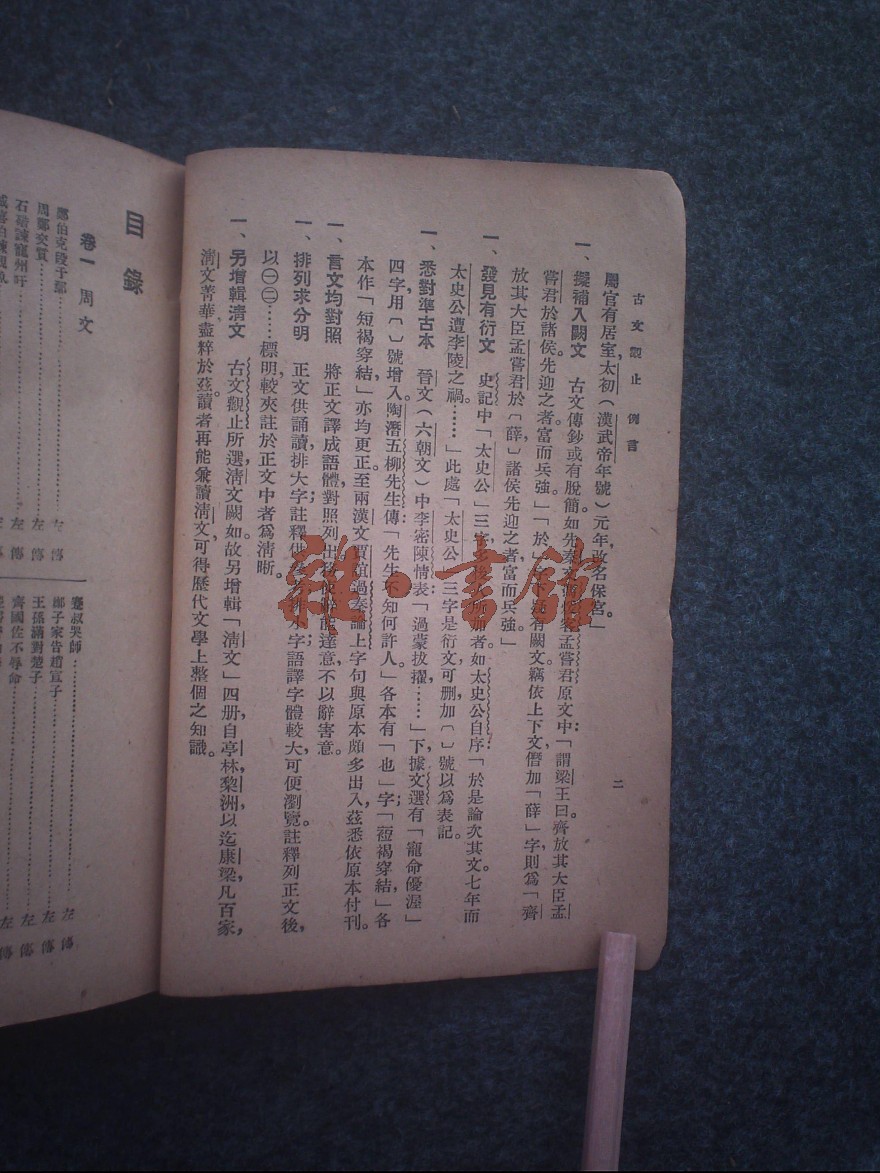 古文觀止 例言
二
屬官有居室，太初（漢武帝年號）元年，改名保宮。」
一、擬補入闕文　古文傳鈔或有脫簡如先秦文孟嘗君原文中：「謂梁王曰齊放其大臣孟
嘗君於諸侯先迎之者富而兵強。」「於」有闕文，竊依上下文僭加「薛」字則爲「齊
放其大臣孟嘗君於〔薛〕諸侯先迎之者富而兵強」
一、發見有衍文　史記中「太史公」三字加者如太史公自序「於是論次其文七年而
太史公遭李陵之禍。……」此處「太史公」三字是衍文，可刪加〔〕號以爲表記。
一、悉對準古本　晉文（六朝文）中李密陳情表：「過蒙拔擢，……」下，據文選有「寵命優渥」
四字，用〔〕號增入。陶潛五柳先生傳：「先生不知何許人」各本有「也」字；「短褐穿結」各
本作「短褐穿結」，亦均更正。至兩漢文賈誼過秦論上字句與原本頗多出入，茲悉依原本付刊。
一、言文均對照　將正文譯成語體，對照列出，達意，不以辭害意。
一、排列求分明　正文供誦讀，排大字；註釋供小字；語譯字體較大，可便瀏覽。註釋列正文後，
以㊀㊁……標明，較夾註於正文中者爲清晰。
一、另增輯清文　古文觀止所選，清文闕如。故另增輯「清文」四册，自亭林黎洲，以迄康梁，凡百家，
清文菁華，盡粹於茲。讀者再能兼讀清文，可得歷代文學上整個之知識。
目錄
卷一 周文
鄭伯克段于鄢……左傳
周鄭交質……左傳
石碏諫寵州吁……左傳
蹇叔哭師……左傳
鄭子家告趙宣子……左傳
王孫滿對楚子……左傳
齊國佐不辱命……左傳
雜·書館